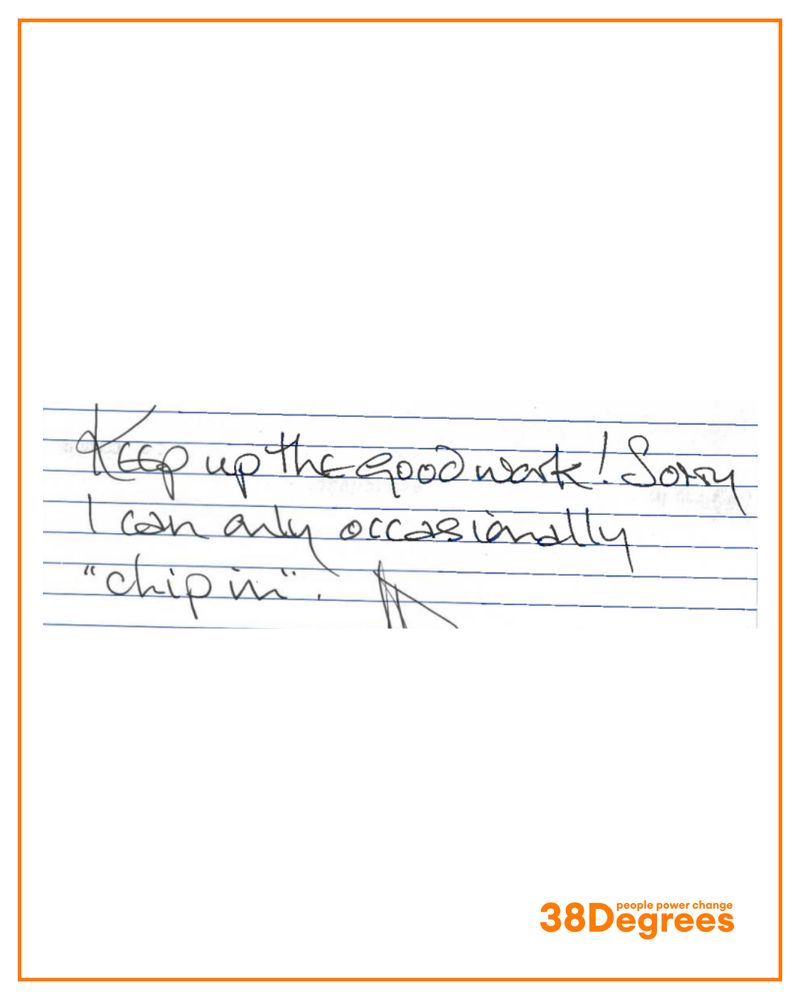 Keep up the good work! Sorry
I can only occasionally
"chip in".
people power change
38Degrees